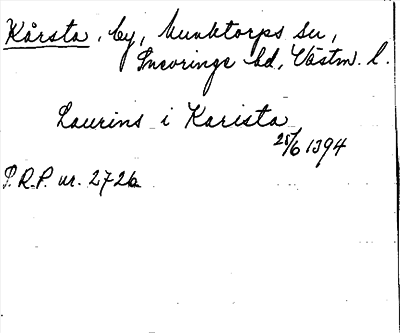 Kårsta, by, Munktorps sn,
Snevringe hd, Västm. l.
Laurins i Karista
25/6 1394
P.R.P. nr. 2726